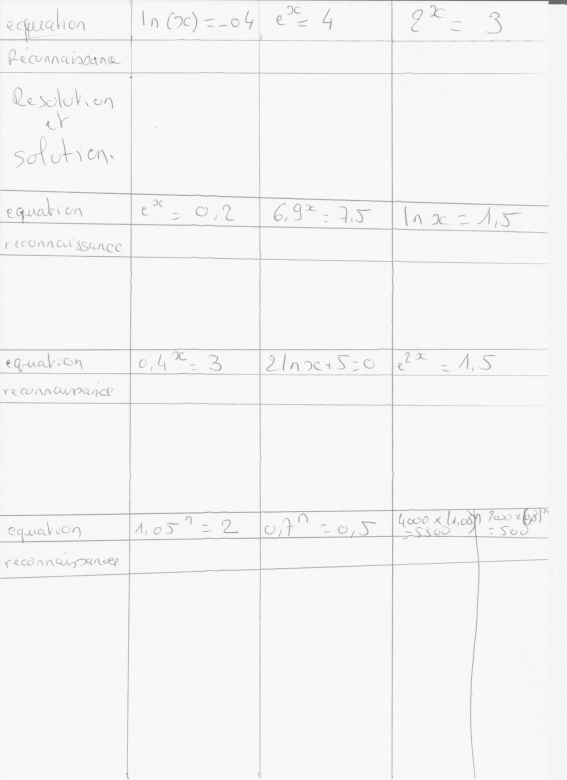 equation ln(x) = -04 e^x = 4 2^x = 3
Réconnaissance
Resolution
et
solution.
equation e^x = 0,2 6,9^x = 7,5 ln x = 1,5
reconnaissance
equation 0,4^x = 3 2lnx+5=0 e^2x = 1,5
reconnaissance
equation 1,05^n = 2 0,7^n = 0,5 4000 × (1,08)^n =5300 2000 × (0,8)^n = 500
reconnaissance